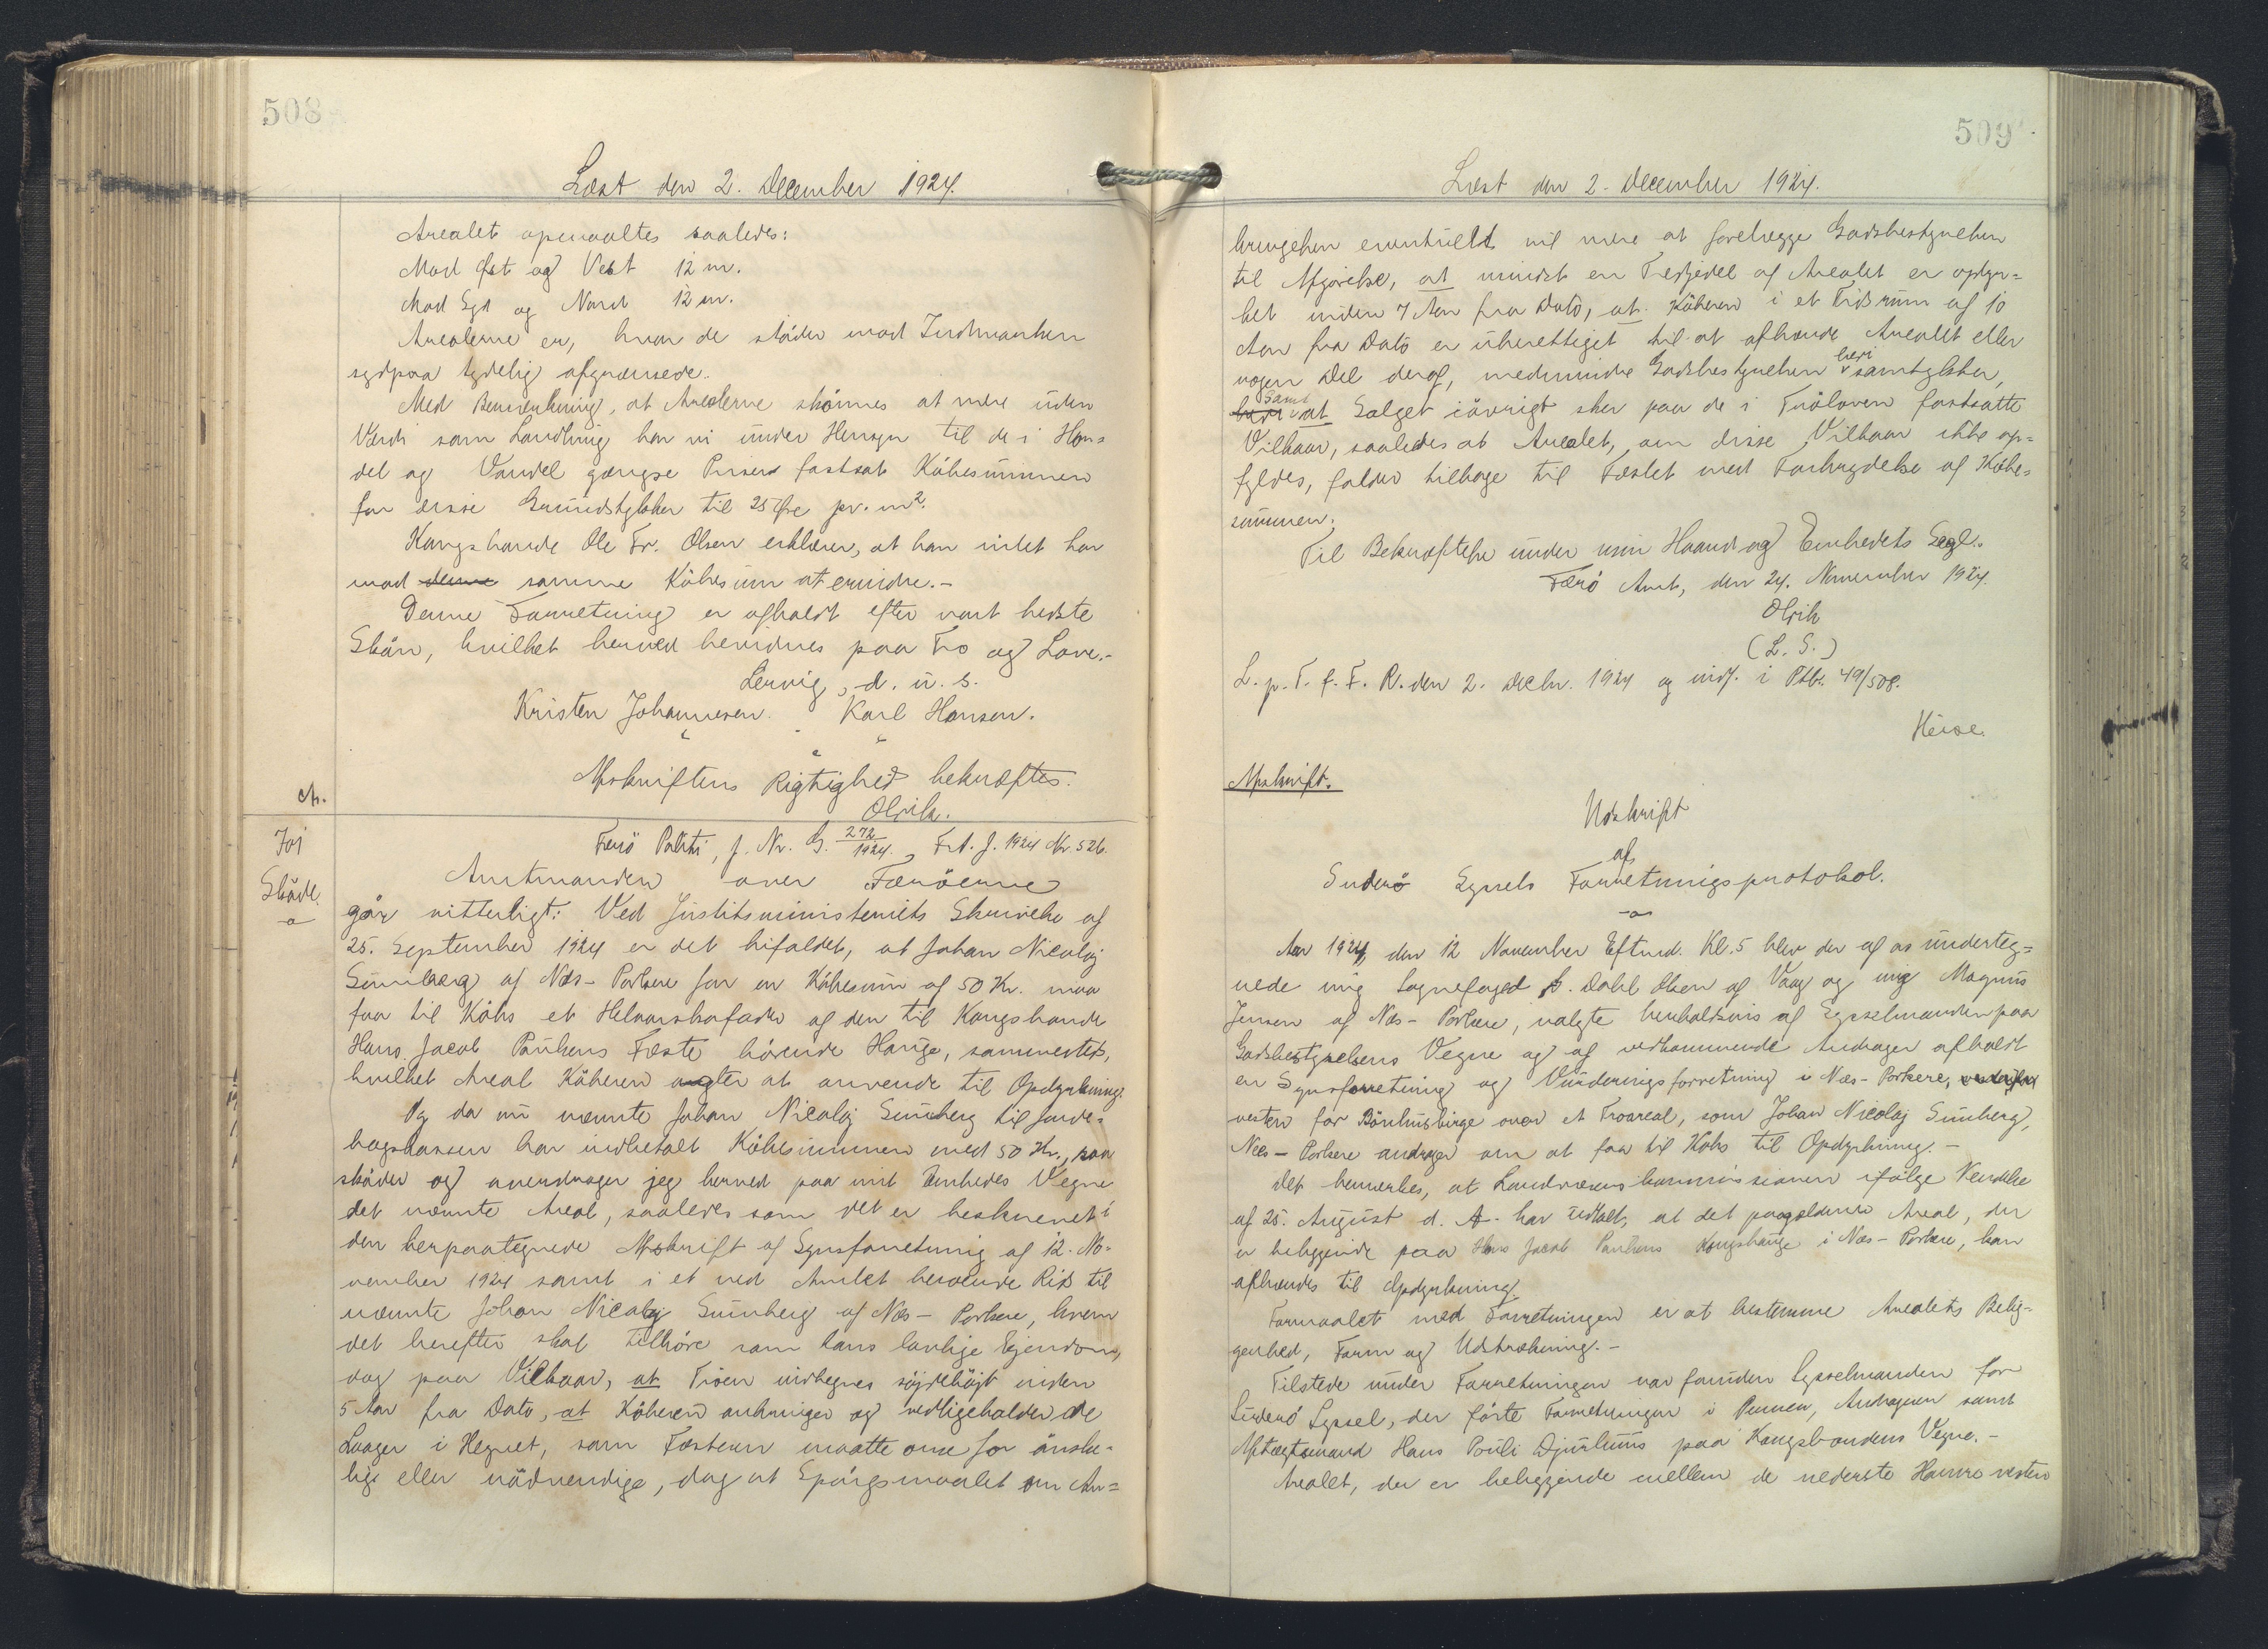 508
Læst den 2. December 1924.
Arealet opmaaltes saaledes:
Mod Øst og Vest 12 m.
Mod Syd og Nord 12 m.
Arealerne er, hvor de støder mod Indmarken
sydpaa tydelig afgrænsede.
Med Bemærkning, at Arealerne skönnes at være uden
Værdi som Landbrug har vi under Hensyn til de i Han=
del og Vandel gængse Priser fastsat Købesummen
for disse Grundstykker til 25 Øre pr. m².
Kongsbonde Ole Fr. Olsen erklærer, at han intet har
mod denne samme Købesum at erindre.-
Denne Forretning er afholdt efter vort bedste
Skön, hvilket herved bevidnes paa Tro og Love.-
Lervig, d. u. s.
Kristen Johannesen. Karl Hansen.
Afskriftens Rigtighed bekræftes.
Olrik.
A.
701
Skøde.
Færö Politi, J. Nr. G. 272/1924., Frt. J. 1924 Nr. 526.
Amtmanden over Færöerne
gør vitterligt: Ved Justitsministeriets Skrivelse af
25. September 1924 er det bifaldet, at Johan Nicolaj
Sumberg af Næs-Porkere for en Købesum af 50 Kr. maa
faa til Købs et Helaarskofoder af den til Kongsbonde
Hans Jacob Poulsens Fæste hörende Hauge, sammesteds,
hvilket Areal Köberen agter at anvende til Opdyrkning.
Og da nu nævnte Johan Nicolaj Sumberg til Jorde=
bogskassen har indbetalt Købesummen med 50 Kr., saa
skøder og overdrager jeg herved paa mit Embedes Vegne
det nævnte Areal, saaledes som det er beskrevet i
den herpaategnede Afskrift af Synsforretning af 12. No=
vember 1924 samt i et ved Amtet beroende Rids til
nævnte Johan Nicolaj Sumberg af Næs-Porkere, hvem
det herefter skal tilhöre som hans lovlige Ejendom,
dog paa Vilkaar, at Tröen indhegnes söjdehöjt inden
5 Aar fra Dato, at Köberen anbringer og vedligeholder de
Laager i Hegnet, som Fæsteren maatte anse for önske=
lige eller nödvendige, dog at Spörgsmaalet om An=
509
Læst den 2. December 1924.
bringelsen eventuelt vil være at forelægge Godsbestyrelsen
til Afgörelse, at mindst en Trediedel af Arealet er opdyr=
ket inden 7 Aar fra Dato, at Köberen i et Tidsrum af 10
Aar fra Dato er uberettiget til at afhænde Arealet eller
nogen Del deraf, medmindre Godsbestyrelsen heri samtykker,
samt at Salget iövrigt sker paa de i Tröloven fastsatte
Vilkaar, saaledes at Arealet, om disse Vilkaar ikke op=
fyldes, falder tilbage til Fæstet med Fortrydelse af Købe=
summen.
Til Bekræftelse under min Haand og Embedets Segl.
Færö Amt, den 24. November 1924.
Olrik
(L. S.)
L. p. T. f. F. R. den 2. Decbr. 1924 og indf. i Ptbr. 49/508.
Heise.
Afskrift.
Udskrift
af
Suderö Syssels Forretningsprotokol.
Aar 1924, den 12 November Eftmd. Kl. 5 blev der af os underteg=
nede mig Sognefoged P. Dahl Olsen af Vaag og mig Magnus
Jensen af Næs-Porkere, valgte henholdsvis af Sysselmanden paa
Godsbestyrelsens Vegne og af vedkommende Andrager afholdt
en Synsforretning og Vurderingsforretning i Næs-Porkere,
vesten for Bönhusbirge over et Troareal, som Johan Nicolaj Sumberg,
Næs-Porkere andrager om at faa til Købs til Opdyrkning.-
Det bemærkes, at Landvæsenskommissionen ifölge Kendelse
af 25. August d. A. har udtalt, at det paagældende Areal, der
er beliggende paa Hans Jacob Poulsens Kongshauge i Næs-Porkere, kan
afhændes til Opdyrkning.
Formaalet med Forretningen er at bestemme Arealets Belig-
genhed, Form og Udstrækning.-
Tilstede under Forretningen var foruden Sysselmanden for
Suderö Syssel, der förte Forretningen i Pennen, Andrageren samt
Aftægtsmand Hans Pauli Djurhuus paa Kongsbondens Vegne.-
Arealet, der er beliggende mellem de nederste Hamre vesten